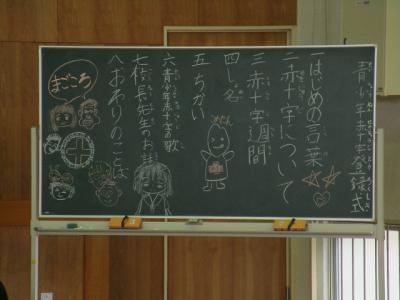 青少年赤十字登録式
一はじめの言葉
二赤十字について
三赤十字週間
四し名
五ちかい
六青少年赤十字の歌
七校長先生のお話
八おわりのことば
まごころ